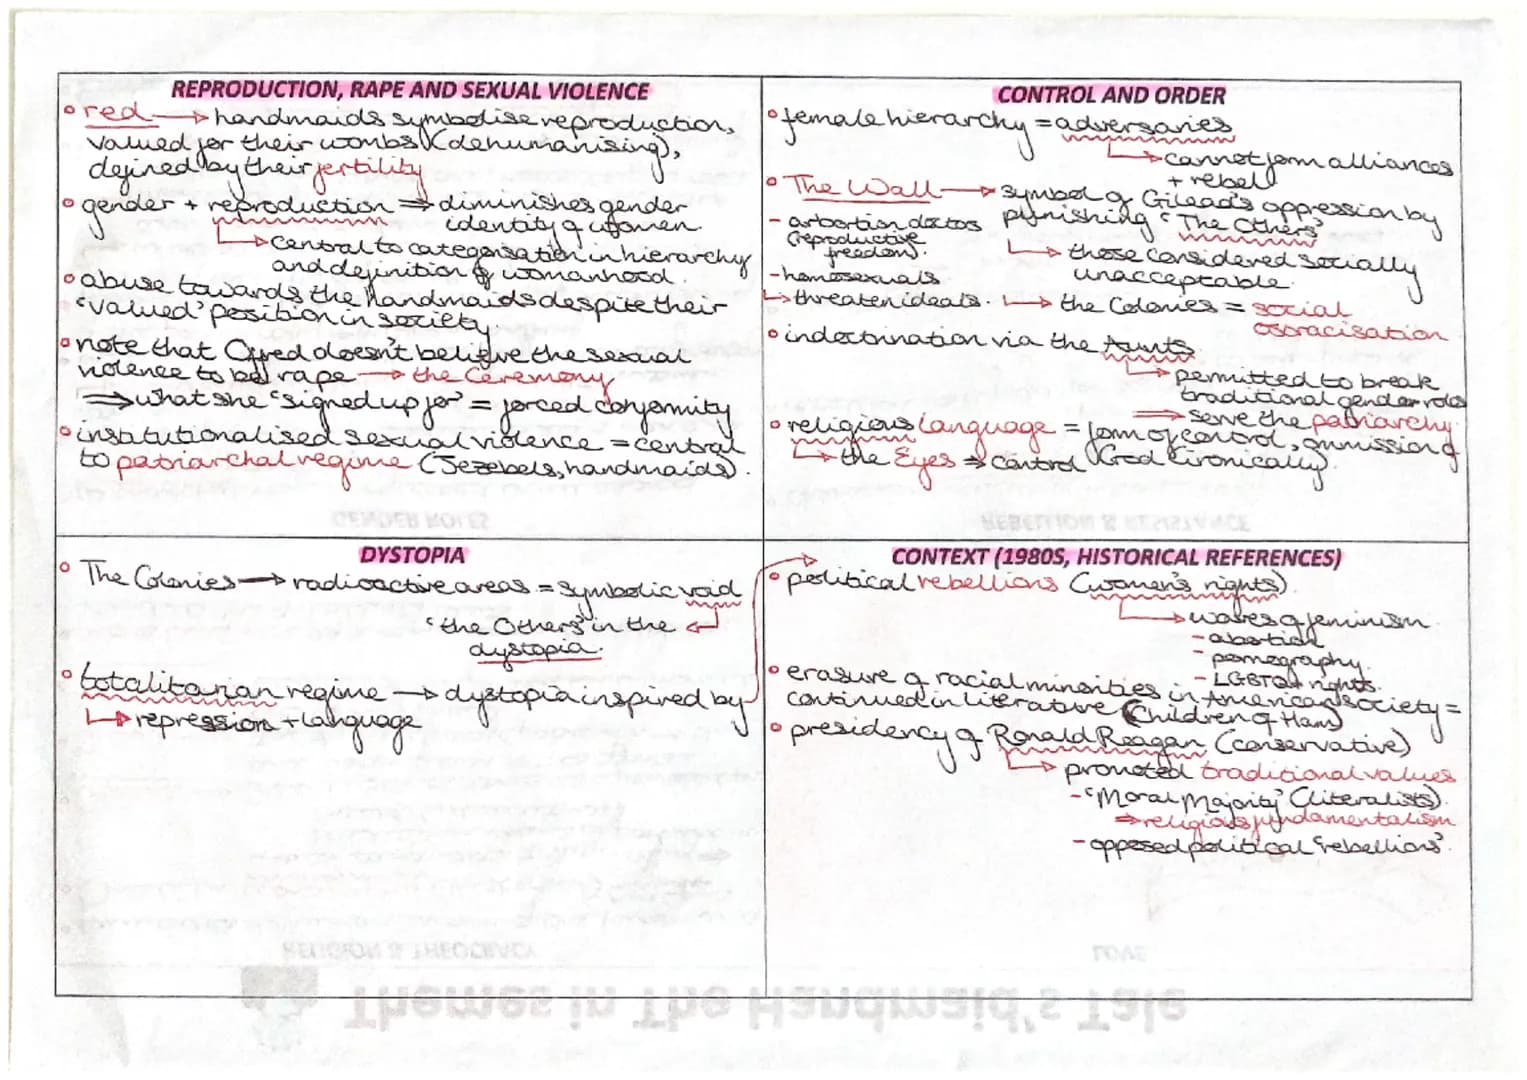 REPRODUCTION, RAPE AND SEXUAL VIOLENCE
• red → handmaids symbolise reproduction,
valued for their wombs (dehumanising),
defined by their fertility
• gender + reproduction ⇒ diminishes gender
identity of women.
↳ central to categorisation in hierarchy
and definition of womanhood.
• abuse towards the handmaids despite their
'valued' position in society
• note that Offred doesn't believe the sexual
violence to be rape → the Ceremony
⇒ what she "signed up for" = forced conformity
• institutionalised sexual violence = central
to patriarchal regime (Jezebels, handmaids).
CONTROL AND ORDER
• female hierarchy = adversaries
↳ cannot form alliances
+ rebel
• The Wall → symbol of Gilead's oppression by
punishing 'The Others'
- arbortion doctos
(reproductive
freedom).
- homosexuals.
↳ threaten ideals.
↳ those considered socially
unacceptable.
↳ the Colonies = social
osoracisation.
• indoctrination via the Aunts.
↳ permitted to break
traditional gender roles
⇒ serve the patriarchy.
• religious language = form of control, ommission of
↳ the Eyes ⇒ control God (ironically).
DYSTOPIA
• The Colonies → radioactive areas = symbolic void
'the Others' in the
dystopia.
• totalitarian regime → dystopia inspired by
↳ repression + language
CONTEXT (1980S, HISTORICAL REFERENCES)
• political rebellions (women's rights).
↳ waves of feminism.
- abortion
- pornography.
- LGBTQ+ rights.
• erasure of racial minorities in American society =
continued in literature (Children of Ham)
• presidency of Ronald Reagan (conservative)
↳ promoted traditional values.
- 'Moral Majority' (literalists).
⇒ religious fundamentalism
- opposed political 'rebellions'.
GENDER ROLES
REBELLION & RESISTANCE
RELIGION & THEOCRACY
LOVE
Themes in The Handmaid's Tale